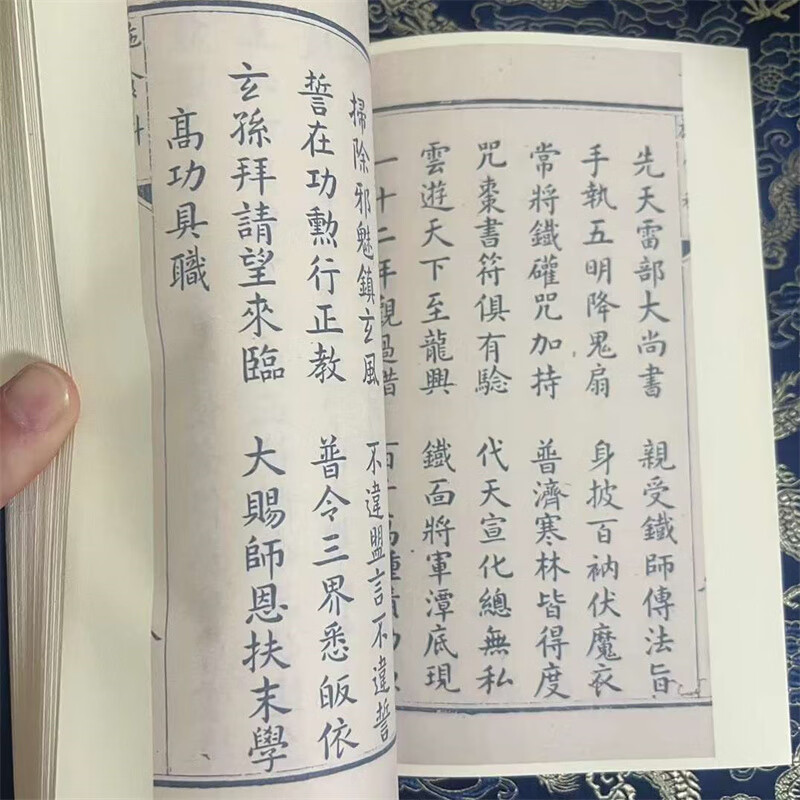 先天雷部大尚書　親受鐵師傳法旨
手執五明降鬼扇　身披百衲伏魔衣
常將鐵礶咒加持　普濟寒林皆得度
咒棗書符俱有驗　代天宣化總無私
雲遊天下至龍興　鐵面將軍潭底現
一十二年觀過
掃除邪魅鎮玄風　不違盟言不違誓
誓在功勲行正教　普令三界悉皈依
玄孫拜請望來臨　大賜師恩扶末學
高功具職